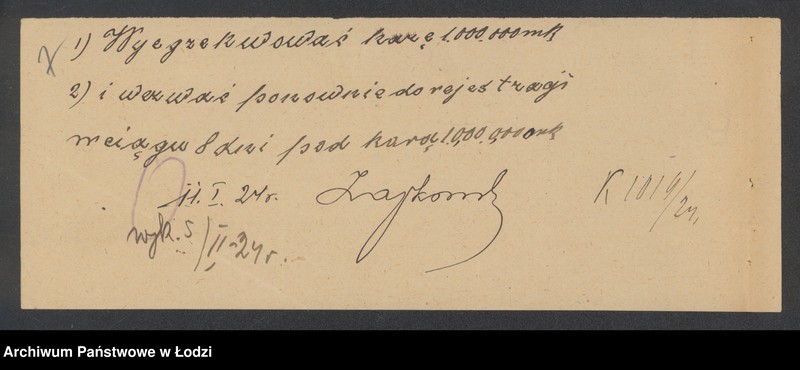 1) Wyegzekwować karę 1.000.000 mk
2) i wezwać ponownie do rejestracji
w ciągu 8 dni pod karą 10.000.000 mk
11. I. 24 r.
K 1019/24.
wyk. 5/II-24 r.
Archiwum Państwowe w Łodzi